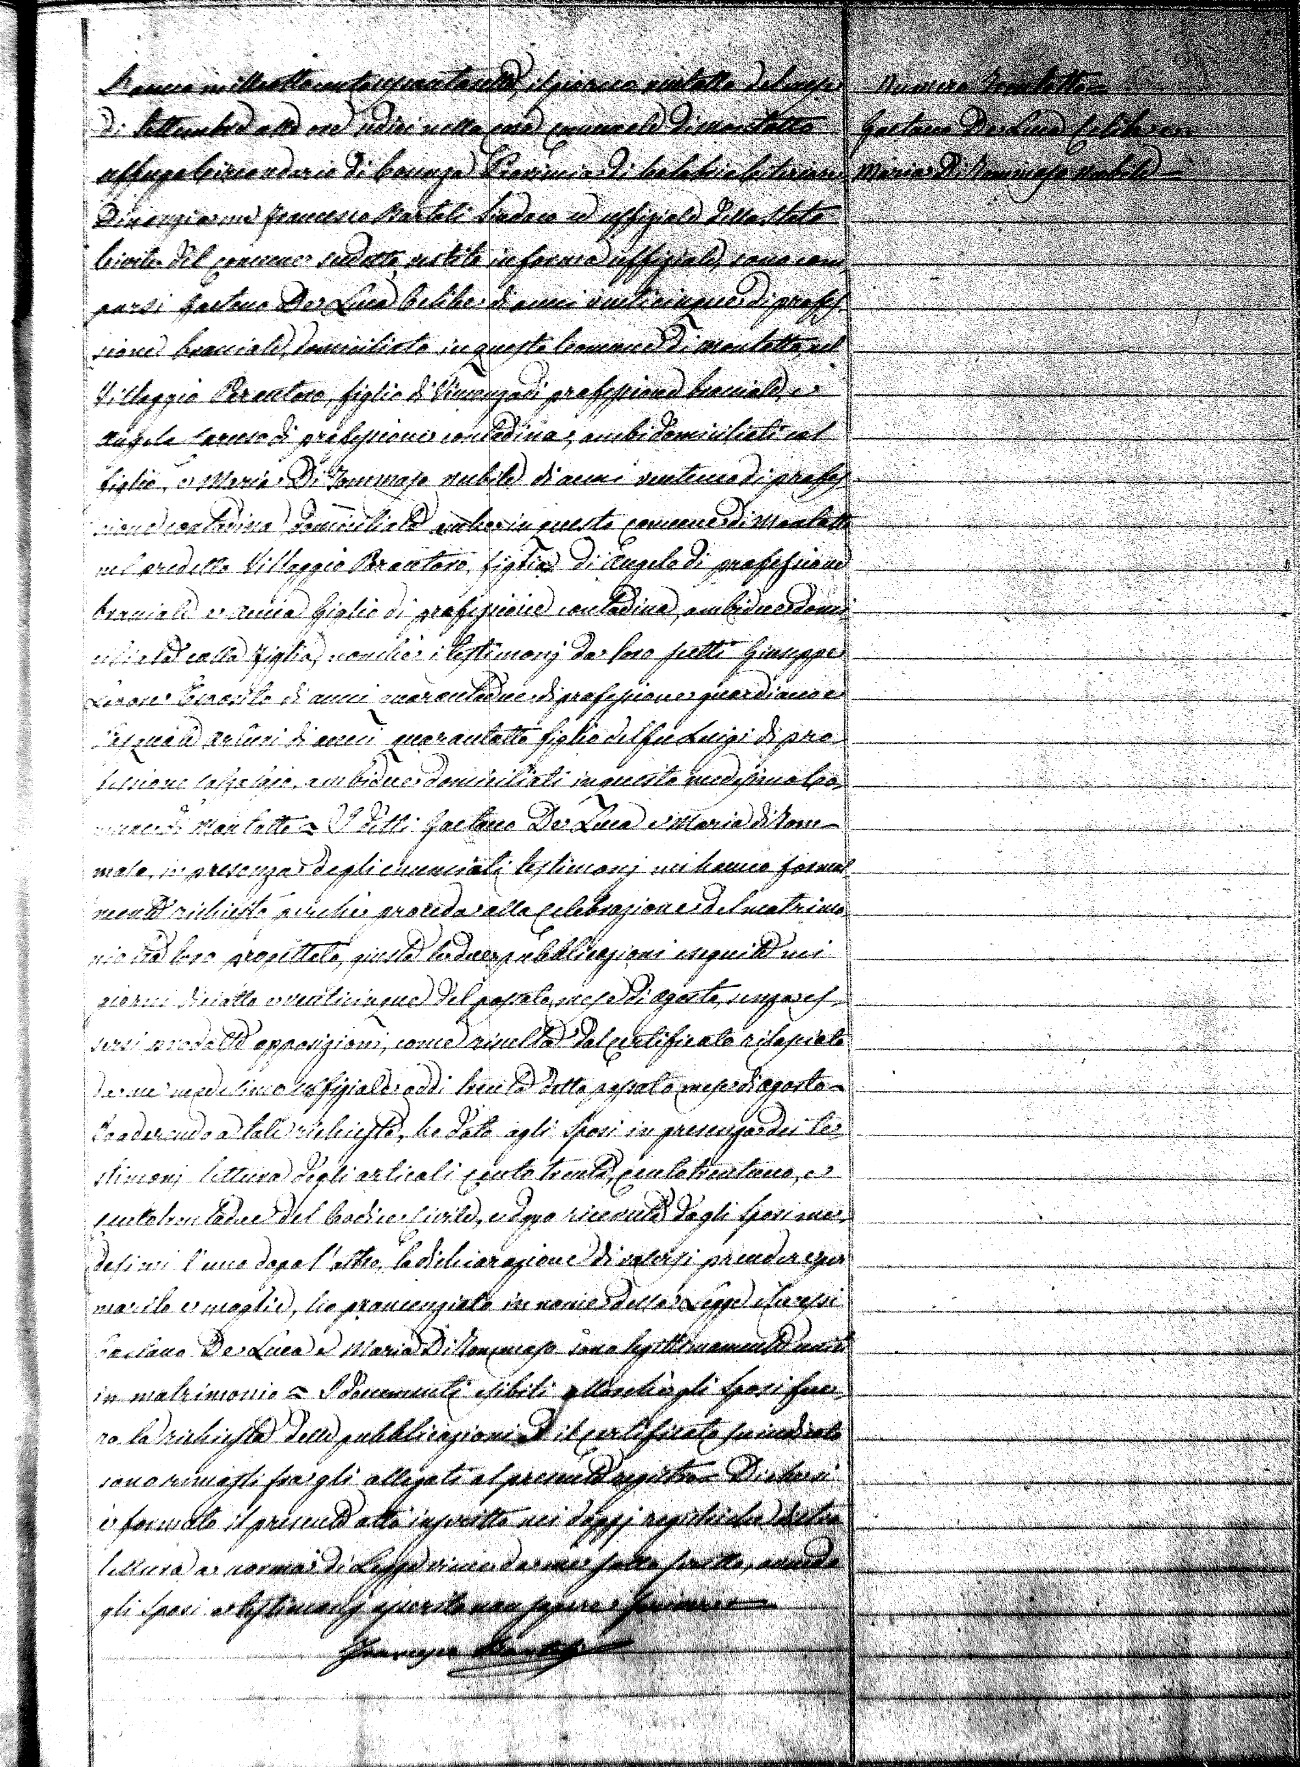 L'anno mille ottocento sessantasette, il giorno ventotto del mese
di Settembre alle ore undici nella casa comunale di Montalto
Uffugo Circondario di Cosenza Provincia di Calabria Citeriore
Dinanzi a me Francesco Bartoli Sindaco ed uffiziale dello stato
Civile del comune sudetto, vestito in forma uffiziale, sono com
parsi Gaetano De Luca Celibe di anni venticinque di profes
sione bracciale, domiciliato in questo Comune di Montalto, nel
Villaggio Parantoro, figlio di Vincenzo di professione bracciale, e
Angela Caruso di professione contadina, ambi domiciliati col
figlio, e Maria Di Tommaso nubile di anni ventuno di profes
sione contadina domiciliata anche in questo comune di Montalto
nel predetto Villaggio Parantoro, figlia di Angelo di professione
bracciale e Anna Giglio di professione contadina, ambidue domi
ciliati colla figlia, nonché i testimonj da loro scelti Giuseppe
Esposito di anni quarantadue di professione guardiano e
Pasquale Arturi di anni quarantotto figlio del fu Luigi di pro
fessione calzolaio, ambidue domiciliati in questo medesimo Co
mune di Montalto = I detti Gaetano De Luca e Maria di Tom
maso, in presenza degli enunciati testimonj mi hanno formal
mente richiesto perché proceda alla celebrazione del matrimo
nio tra loro progettato, giusta le due pubblicazioni eseguite nei
giorni diciotto e venticinque del passato mese di agosto, senza es
sersi prodotte opposizioni, come risulta dal certificato rilasciato
da me medesimo uffiziale addi trenta detto passato mese di agosto =
Io aderendo a tale richiesta, ho dato agli sposi in presenza dei te
stimonj lettura degli articoli cento trenta, centotrentuno, e
centotrentadue del Codice Civile, e dopo ricevuta dagli sposi me
desimi l'uno dopo l'altro, la dichiarazione di volersi prendere per
marito e moglie, ho pronunziato in nome della Legge che essi
Gaetano De Luca e Maria Di Tommaso sono legittimamente uniti
in matrimonio = I documenti esibiti allorché gli sposi fece
ro la richiesta delle pubblicazioni ed il certificato suindicato
sono rimasti fra gli allegati al presente registro = Di che si
è formato il presente atto inscritto nei doppj registri che dietro
lettura a norma di Legge viene da me solo scritto, avendo
gli sposi e testimonj asserito non sapere scrivere =
Francesco Bartoli
Numero Trentotto =
Gaetano De Luca Celibe con
Maria Di Tommaso nubile =